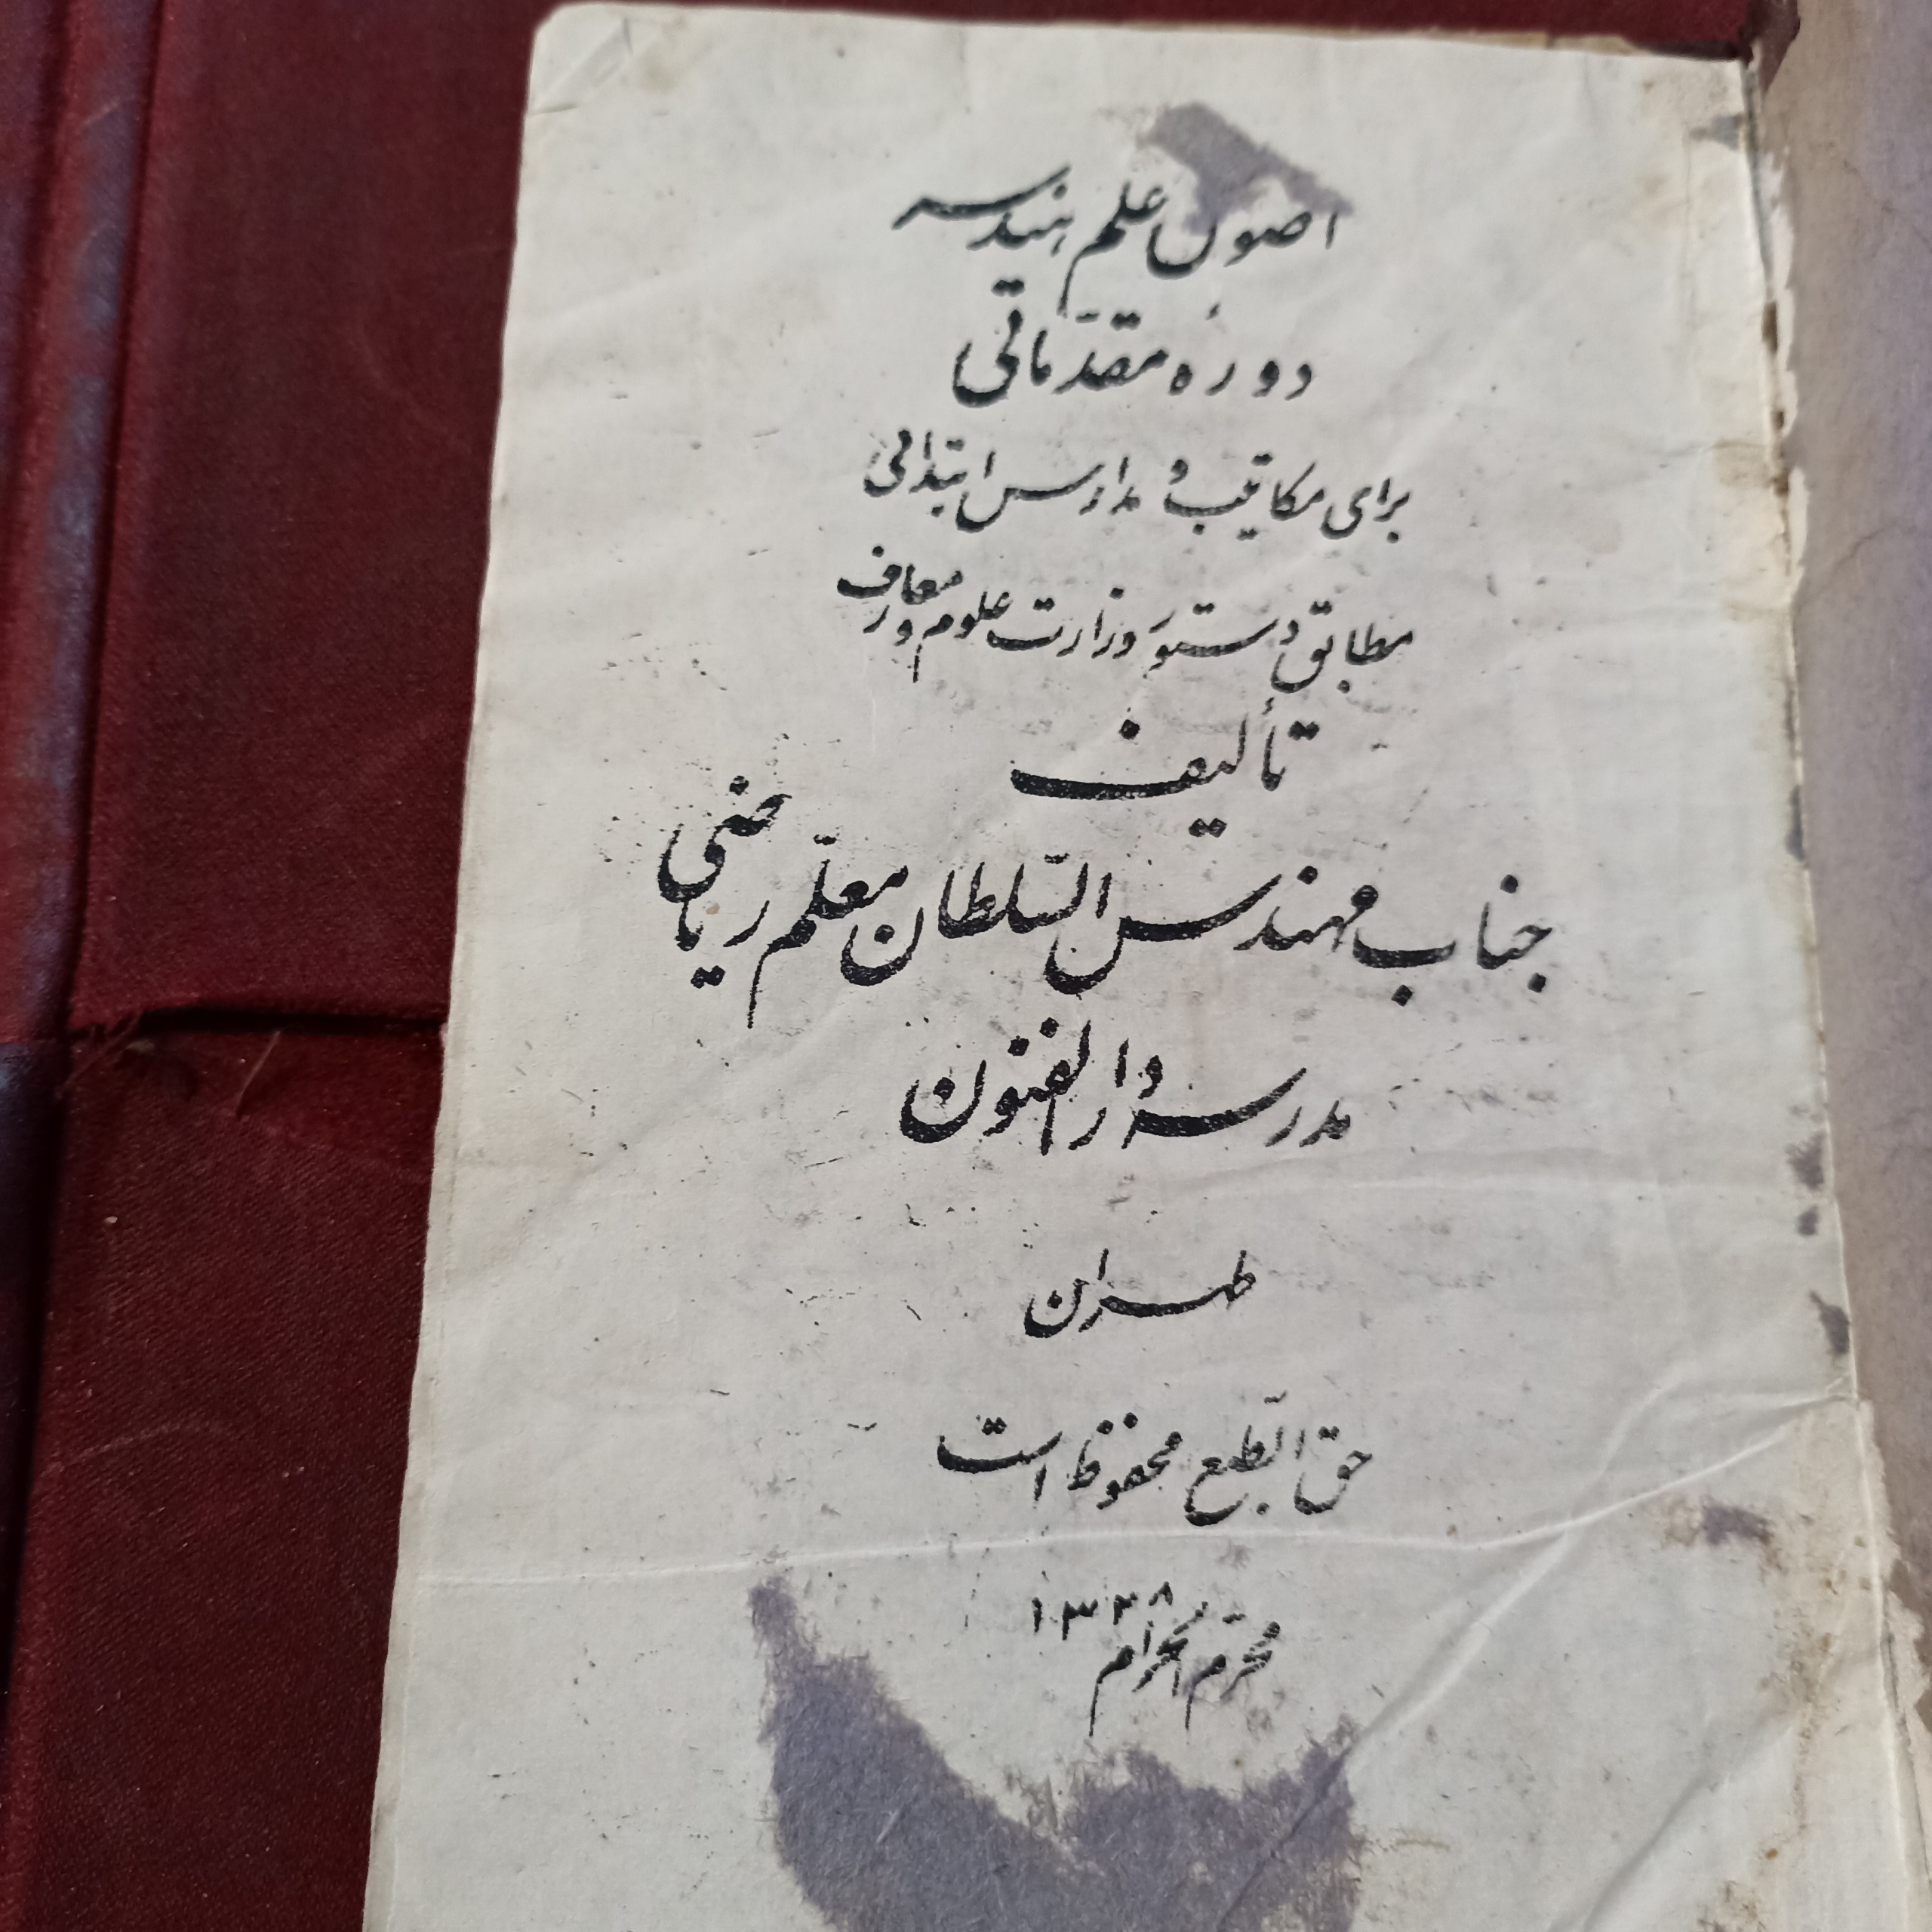 اصول علم هندسه
دورهٔ مقدّماتی
برای مکاتیب و مدارس ابتدائی
مطابق دستور وزارت علوم و معارف
تألیف
جناب مهندس السّلطان معلّم ریاضی
مدرسهٔ دارالفنون
طهران
حق الطّبع محفوظ است
محرّم الحرام ۱۳۲۸